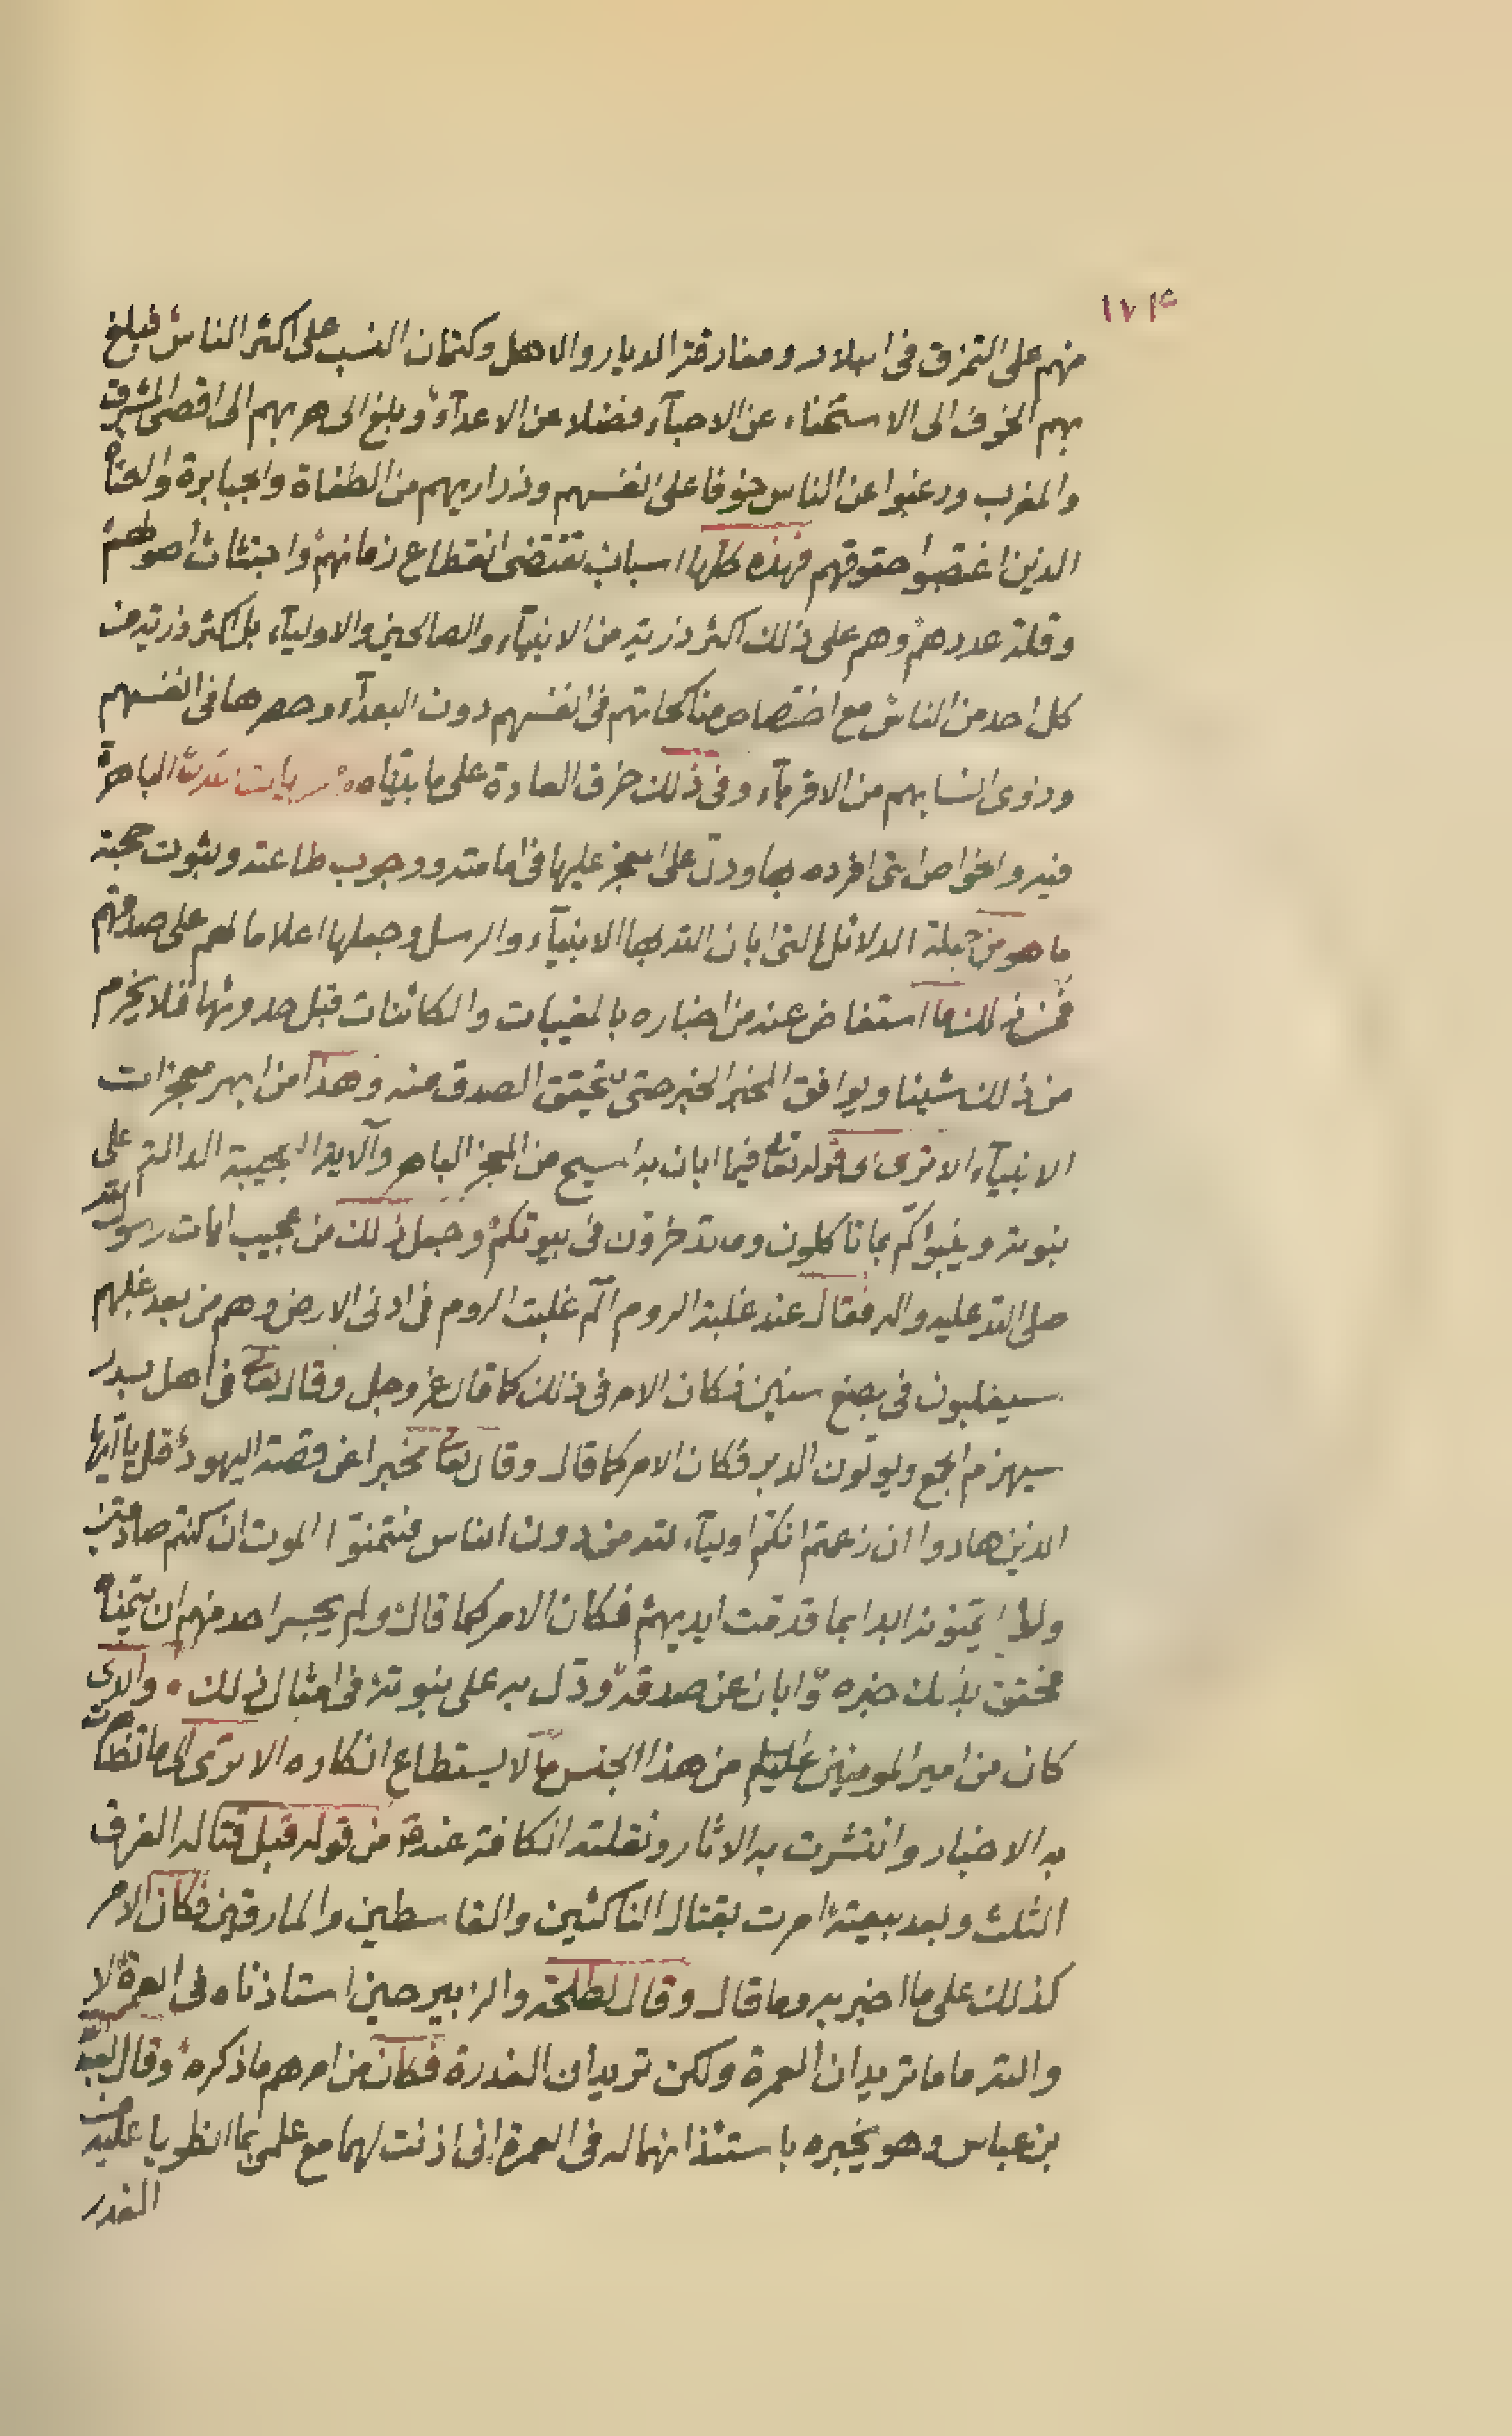 ۱۷۴
منهم على التمزق فى البلاد ومفارقة الديار والاهل وكتمان النسب على اكثر الناس فبلغ
بهم الخوف الى الاستخفاء عن الاحبآء فضلا عن الاعدآء وبلغ الى هربهم الى اقصى المشرق
والمغرب ورغبوا عن الناس خوفا على انفسهم وذراريهم من الطغاة والجبابرة والعتاة
الذين اغتصبوا حقوقهم فهذه كلها اسباب تقتضى انقطاع زمانهم واجتثاث اصولهم
وقلة عددهم وهم على ذلك اكثر ذرية من الانبيآء والصالحين والاوليآء بل اكثر ذرية من
كل احد من الناس مع اختصاص مناكحاتهم فى انفسهم دون البعدآء وحصرها فى انفسهم
وذوى انسابهم من الاقربآء وفى ذلك خرق العادة على ما بيناه الباهرة
فيه والخواص التى افرده بها ودل على المعجز عليها فى امامته ووجوب طاعته وثبوت حجته
ما هو من جملة الدلائل التى ابان الله بها الانبيآء والرسل وجعلها اعلاما لهم على صدقهم
فمن ذلك ما استفاض عنه من اخباره بالمغيبات والكائنات قبل حدوثها فلا يخرم
من ذلك شيئا ويوافق المخبر الخبر حتى يتحقق الصدق منه وهذا من ابهر معجزات
الانبيآء الا ترى الى قوله تعالى فيما ابان به المسيح من المعجز الباهر والآية العجيبة الدالة على
نبوته وينبؤاكم بما تاكلون وما تدخرون فى بيوتكم وجعل ذلك من عجيب ايات رسول الله
صلى الله عليه واله فقال عند غلبة الروم الم غلبت الروم فى ادنى الارض وهم من بعد غلبهم
سيغلبون فى بضع سنين فكان الامر فى ذلك كما قال عز وجل وقال تعالى فى اهل بدر
سيهزم الجمع ويولون الدبر فكان الامر كما قال وقال تعالى مخبرا عن قصة اليهود قل يا ايها
الذين هادوا ان زعمتم انكم اوليآء لله من دون الناس فتمنوا الموت ان كنتم صادقين
ولا يتمنونه ابدا بما قدمت ايديهم فكان الامر كما قال ولم يجسر احد منهم ان يتمناه
فحقق بذلك خبره وابان عن صدقه ودل به على نبوته فى امثال ذلك . والذى
كان من امير المومنين عليه السلم من هذا الجنس ما لا يستطاع انكاره الا ترى الى ما تظاهرت
به الاخبار وانتشرت به الاثار ونقلته الكافة عنه من قوله قبل قتاله الفرق
الثلث وبعد بيعته امرت بقتال الناكثين والقاسطين والمارقين فكان الامر
كذلك على ما اخبر به وما قال وقال لطلحة والزبير حين استاذناه فى العمرة لا
والله ما ما تريدان العمرة ولكن تريدان الغدرة فكان من امرهم ما ذكره وقال لعبد الله
بن عباس وهو يخبره باستئذانهما له فى العمرة انى اذنت لهما مع علمى بما انطويا عليه من
الغدر